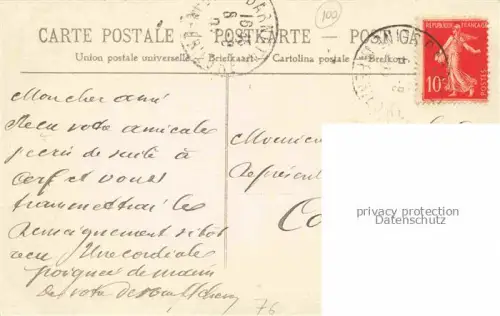 100
CARTE POSTALE - POSTKARTE - POST
Union postale universelle Briefkaart Cartolina postale Briefkort
REPUBLIQUE FRANÇAISE
10
POSTES
Mon cher ami
Recu votre amicale
j'ecris de suite à
Cerf et vous
transmettrai les
renseignements sitot
recu Une cordiale
poignee de main
de votre
Monsieur
Représent
privacy protection
Datenschutz
76